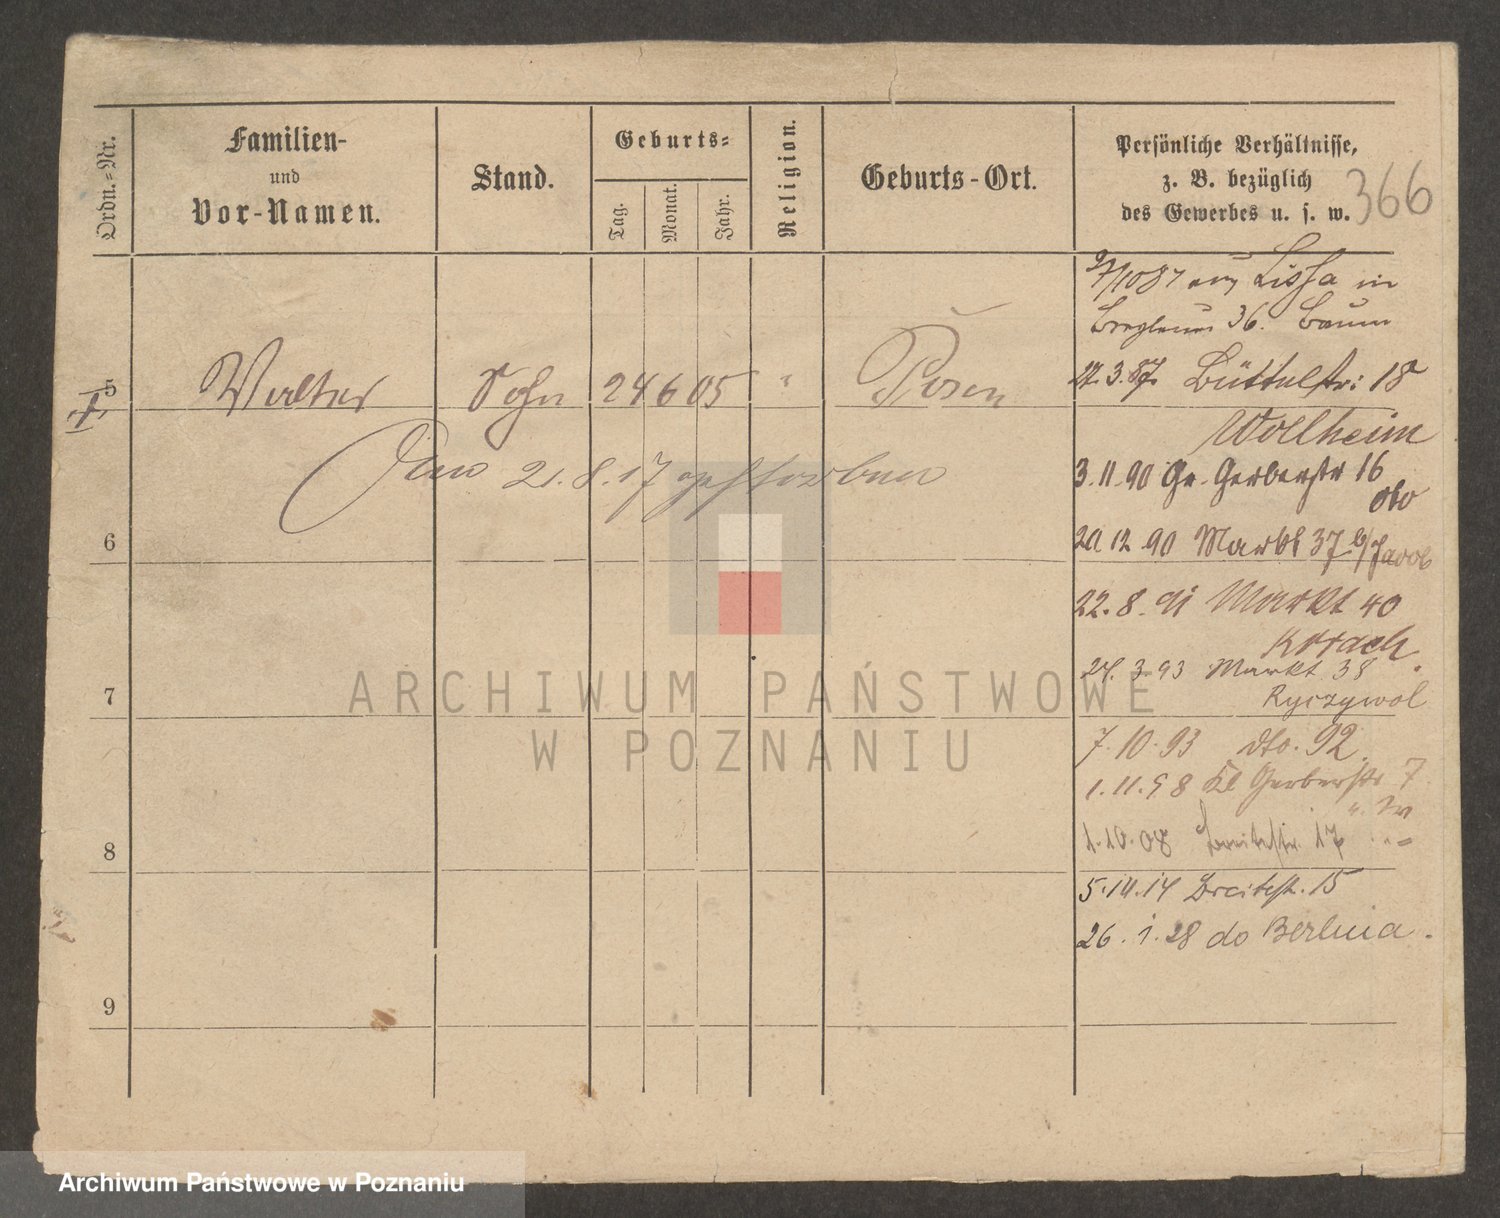 Ordn.-Nr.
Familien-
und
Vor-Namen.
Stand.
Geburts-
Tag.
Monat.
Jahr.
Religion.
Geburts-Ort.
Persönliche Verhältnisse,
z. B. bezüglich
des Gewerbes u. s. w.
366
Lissa in
36. Baum
5 Walter Sohn 24 6 05 " Posen
3. 87. Büttelstr: 18
Wollheim
21.8.17 gestorben
3.11.90 Gr. Gerberstr 16
6
12.90 Markt 37
22.8.91 Markt 40
Korach
24.3.93 Markt 38
7
Ryczywol
7.10.93 dto. 92.
1.11.98 Kl Gerberstr 7
8
1.10.08 Breitestr. 17
5.10.14 Breitestr. 15
26.1.28 do Berlina.
9
ARCHIWUM PAŃSTWOWE
W POZNANIU
Archiwum Państwowe w Poznaniu